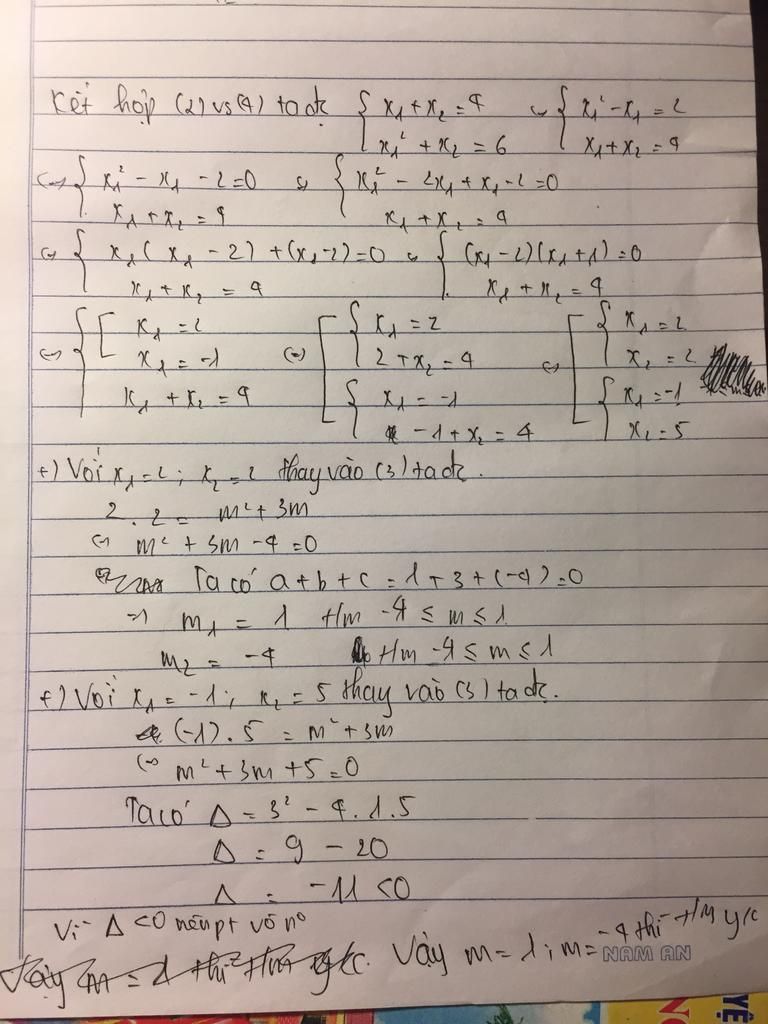 Kết hợp (2) vs (4) ta đc { x₁ + x₂ = 4 ⇔ { x₁² - x₁ = 2
x₁² + x₂ = 6 x₁ + x₂ = 4
⇔ { x₁² - x₁ - 2 = 0 ⇔ { x₁² - 2x₁ + x₁ - 2 = 0
x₁ + x₂ = 4 x₁ + x₂ = 4
⇔ { x₁(x₁ - 2) + (x₁ - 2) = 0 ⇔ { (x₁ - 2)(x₁ + 1) = 0
x₁ + x₂ = 4 x₁ + x₂ = 4
⇔ { [ x₁ = 2 ⇔ [ { x₁ = 2 ⇔ [ { x₁ = 2
x₁ = -1 2 + x₂ = 4 x₂ = 2
x₁ + x₂ = 4 { x₁ = -1 { x₁ = -1
-1 + x₂ = 4 x₂ = 5
+) Với x₁ = 2 ; x₂ = 2 thay vào (3) ta đc.
2 . 2 = m² + 3m
⇔ m² + 3m - 4 = 0
Ta có a + b + c = 1 + 3 + (-4) = 0
⇒ m₁ = 1 t/m -4 ≤ m ≤ 1
m₂ = -4 t/m -4 ≤ m ≤ 1
+) Với x₁ = -1 ; x₂ = 5 thay vào (3) ta đc.
(-1) . 5 = m² + 3m
⇔ m² + 3m + 5 = 0
Ta có Δ = 3² - 4 . 1 . 5
Δ = 9 - 20
Δ = -11 < 0
Vì Δ < 0 nên pt vô n⁰
Vậy m = 1 thì t/m y/c. Vậy m = 1 ; m = -4 thì t/m y/c
NAM AN
YỆ